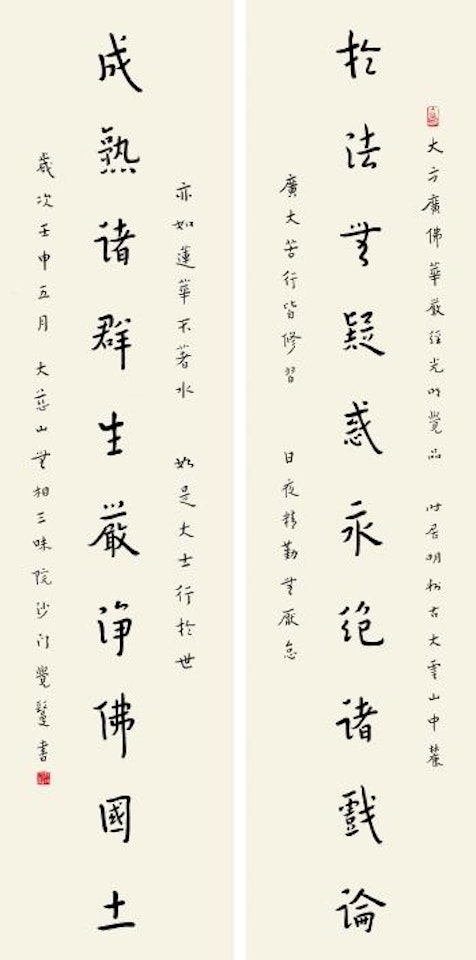 大方廣佛華嚴經光明覺品 時居明州古大雲山中麓
於法無疑惑永絕諸戲論
廣大苦行皆修習 日夜精勤無厭怠
亦如蓮華不著水 如是大士行於世
成熟諸群生嚴淨佛國土
歲次壬申五月 大慈山無相三昧院沙门覺鬘書